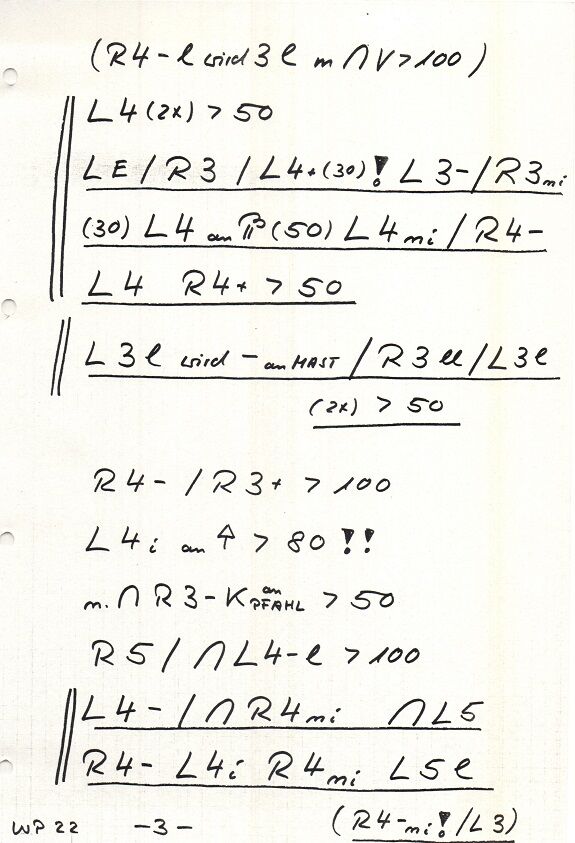 (R4-l wird 3 l m ∩ V > 100)
L4 (2x) > 50
LE / R3 / L4+ (30)! L3- / R3mi
(30) L4 an (50) L4mi / R4-
L4 R4+ > 50
L3l wird - an MAST / R3ll / L3l
(2x) > 50
R4- / R3+ > 100
L4i an ⇑ > 80 !!
m. ∩ R3-K an PFAHL > 50
R5 / ∩ L4-l > 100
L4- / ∩ R4mi ∩ L5
R4- L4i R4mi L5l
WP 22 -3- (R4-mi! / L3)